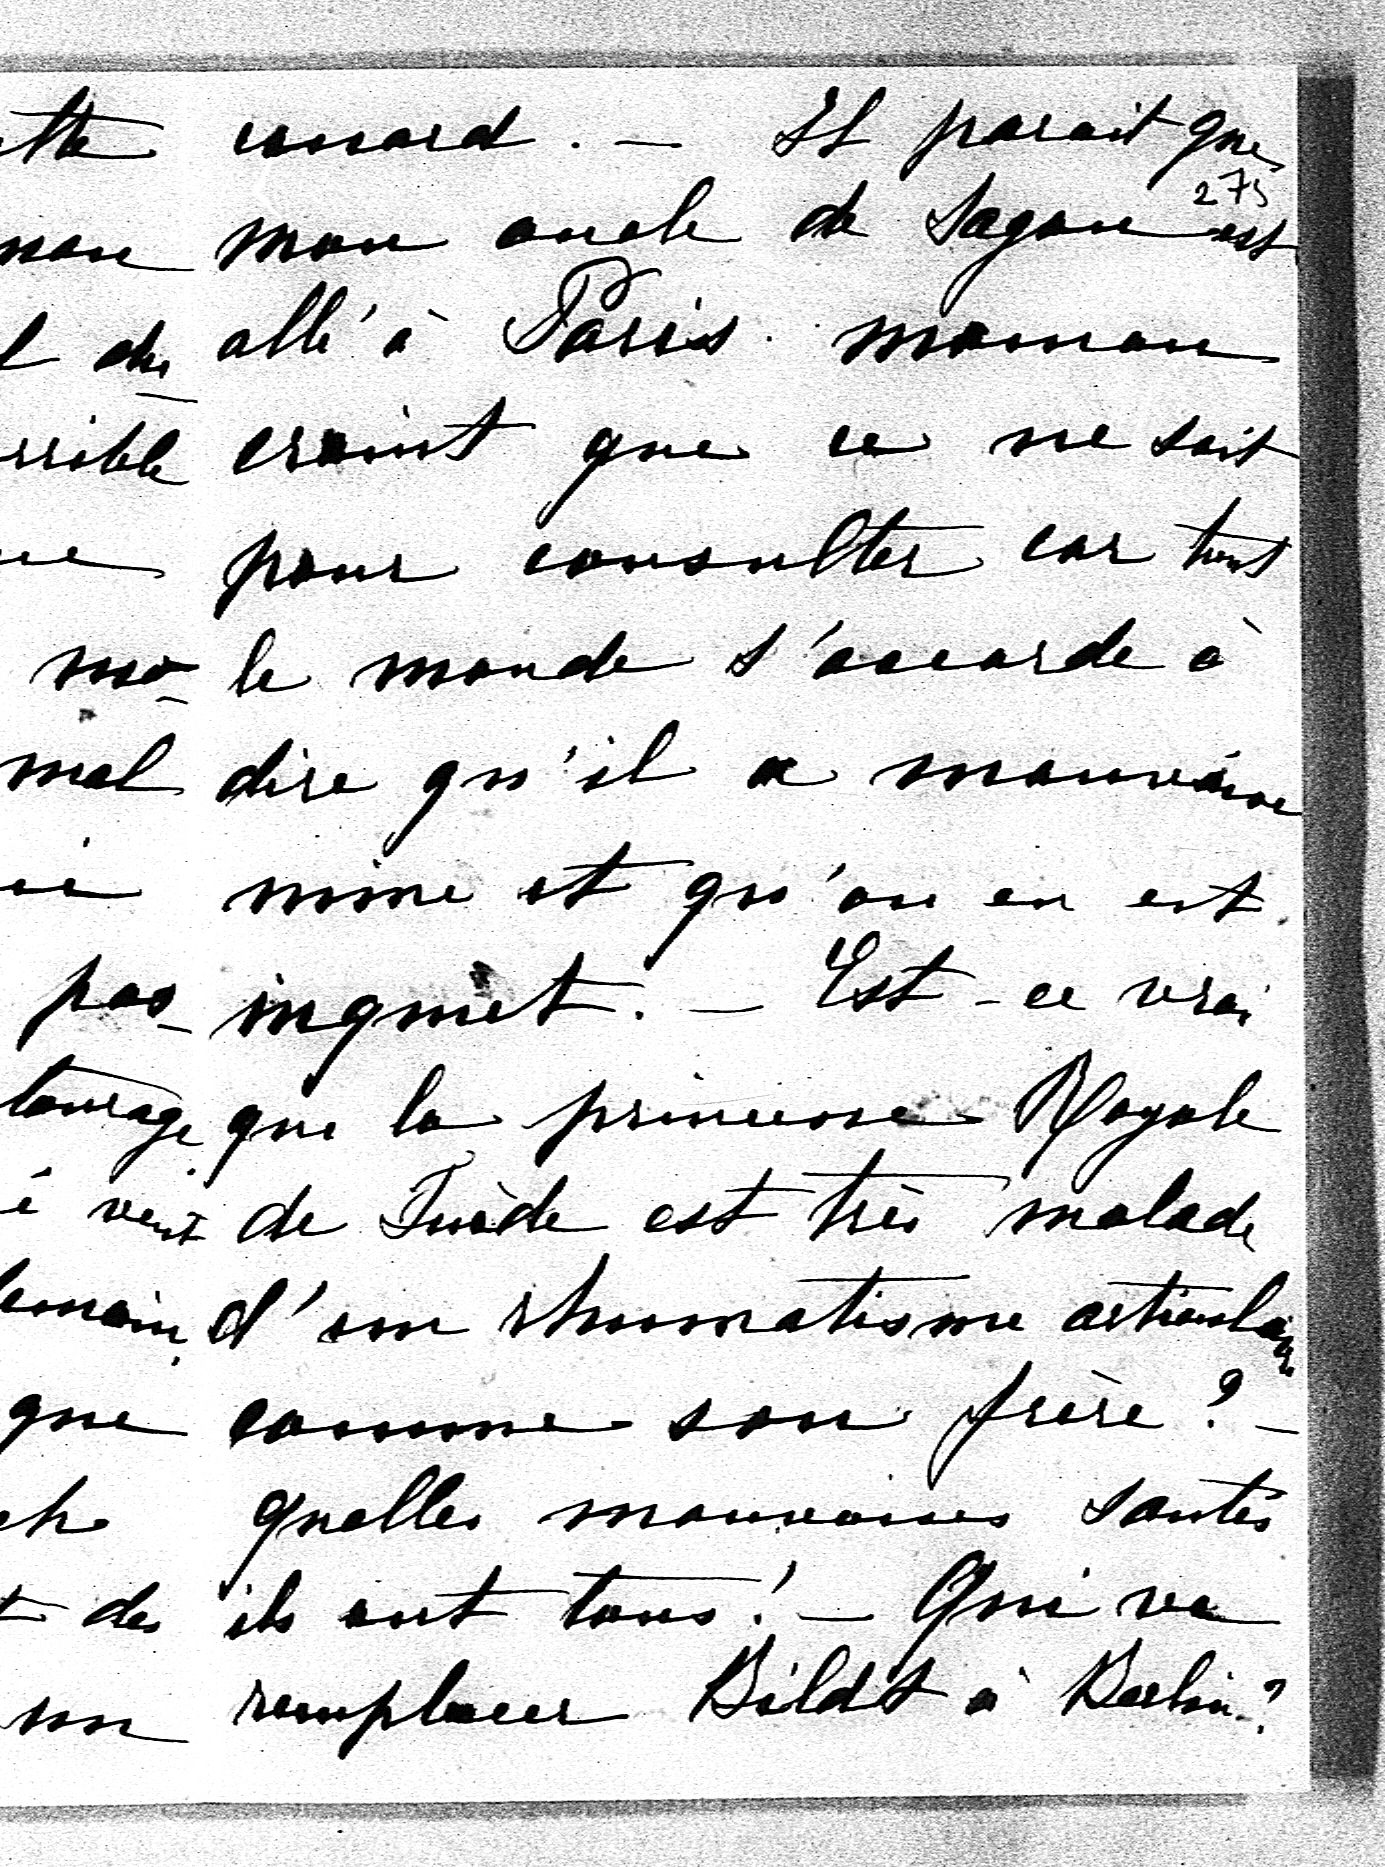 canard. — Il parait que
275
mon oncle de Sagan est
allé à Paris. maman
craint que ce ne soit
pour consulter car tout
le monde s'accorde à
dire qu'il a mauvaise
mine et qu'on en est
inquiet. — Est-ce vrai
que la princesse Royale
de Suède est très malade
d'un rhumatisme articulaire
comme son frère? —
quelles mauvaises santés
ils ont tous! — Qui va
remplacer Bildt à Berlin?